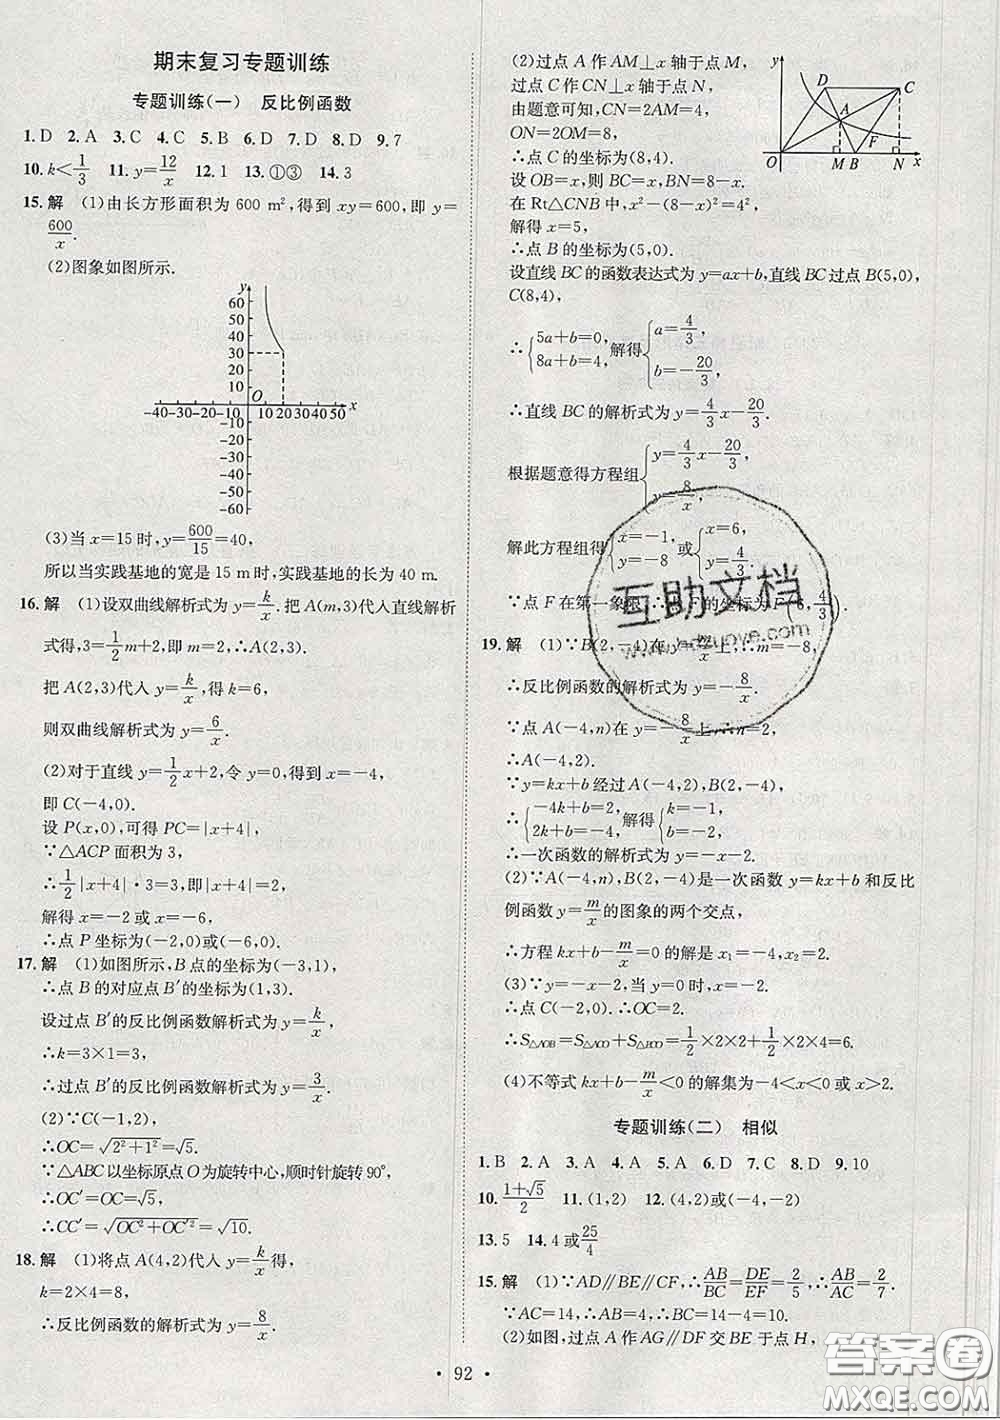 期末复习专题训练
专题训练(一) 反比例函数
1. D 2. A 3. C 4. C 5. B 6. D 7. D 8. D 9. 7
10. k<1/3 11. y=12/x 12. 1 13. ①③ 14. 3
15. 解 (1)由长方形面积为 600 m²,得到 xy=600,即 y=
600/x.
(2)图象如图所示.
y
60
50
40
30
20
10
O
-40-30-20-10 10 20 30 40 50 x
-10
-20
-30
-40
-50
-60
(3)当 x=15 时,y=600/15=40,
所以当实践基地的宽是 15 m时,实践基地的长为 40 m.
16. 解 (1)设双曲线解析式为 y=k/x.把 A(m,3)代入直线解析
式得,3=1/2m+2,即 m=2,∴A(2,3).
把 A(2,3)代入 y=k/x,得 k=6,
则双曲线解析式为 y=6/x.
(2)对于直线 y=1/2x+2,令 y=0,得到 x=-4,
即 C(-4,0).
设 P(x,0),可得 PC=|x+4|,
∵△ACP 面积为 3,
∴1/2|x+4|·3=3,即|x+4|=2,
解得 x=-2 或 x=-6,
∴点 P 坐标为(-2,0)或(-6,0).
17. 解 (1)如图所示,B 点的坐标为(-3,1),
∴点 B 的对应点 B′的坐标为(1,3).
设过点 B′的反比例函数解析式为 y=k/x,
∴k=3×1=3,
∴过点 B′的反比例函数解析式为 y=3/x.
(2)∵C(-1,2),
∴OC=√(2²+1²)=√5.
∵△ABC 以坐标原点 O 为旋转中心,顺时针旋转 90°,
∴OC′=OC=√5,
∴CC′=√(OC²+OC′²)=√10.
18. 解 (1)将点 A(4,2)代入 y=k/x,得
k=2×4=8,
∴反比例函数的解析式为 y=8/x.
(2)过点 A 作 AM⊥x 轴于点 M,
过点 C 作 CN⊥x 轴于点 N,
由题意可知,CN=2AM=4,
ON=2OM=8,
∴点 C 的坐标为(8,4).
设 OB=x,则 BC=x,BN=8-x.
在 Rt△CNB 中,x²-(8-x)²=4²,
解得 x=5,
∴点 B 的坐标为(5,0).
y
D
C
A
F
O
M
B
N
x
设直线 BC 的函数表达式为 y=ax+b,直线 BC 过点 B(5,0),
C(8,4),
∴{5a+b=0, 8a+b=4, 解得{a=4/3, b=-20/3,
∴直线 BC 的解析式为 y=4/3x-20/3.
根据题意得方程组{y=4/3x-20/3, y=8/x,
解此方程组得{x=-1, y=-8 或{x=6, y=4/3.
∵点 F 在第一象限,∴点 F 的坐标为 F(6,4/3).
19. 解 (1)∵B(2,-4)在 y=m/x上,∴m=-8,
∴反比例函数的解析式为 y=-8/x.
∵点 A(-4,n)在 y=-8/x上,∴n=2,
∴A(-4,2).
∵y=kx+b 经过 A(-4,2),B(2,-4),
∴{-4k+b=2, 2k+b=-4, 解得{k=-1, b=-2.
∴一次函数的解析式为 y=-x-2.
(2)∵A(-4,n),B(2,-4)是一次函数 y=kx+b 和反比
例函数 y=m/x的图象的两个交点,
∴方程 kx+b-m/x=0 的解是 x₁=-4,x₂=2.
(3)∵y=-x-2,当 y=0 时,x=-2,
∴点 C(-2,0),∴OC=2.
∴S△AOB=S△ACO+S△BCO=1/2×2×2+1/2×2×4=6.
(4)不等式 kx+b-m/x<0 的解集为-4<x<0 或 x>2.
专题训练(二) 相似
1. B 2. A 3. A 4. A 5. A 6. D 7. C 8. D 9. 10
10. (1+√5)/2 11. (1,2) 12. (4,2)或(-4,-2)
13. 5 14. 4或25/4
15. 解 (1)∵AD∥BE∥CF,∴AB/BC=DE/EF=2/5,∴AB/AC=2/7.
∵AC=14,∴AB=4,∴BC=14-4=10.
(2)如图,过点 A 作 AG∥DF 交 BE 于点 H,
· 92 ·
互助文档
www.hdzuoye.com
答案圈
MXQE.COM